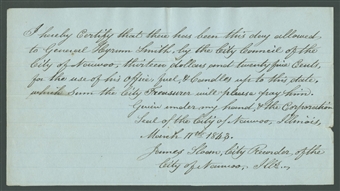 I hereby Certify that there has been this day allowed
to General Hyrum Smith, by the City Council of the
City of Nauvoo, thirteen dollars and twenty five Cents,
for the use of his office, fuel, & Candles up to this date,
which sum the City Treasurer will please pay him.
Given under my hand, & the Corporation
Seal of the City of Nauvoo, Illinois,
March 11th 1843.
James Sloan, City Recorder of the
City of Nauvoo, Ills.